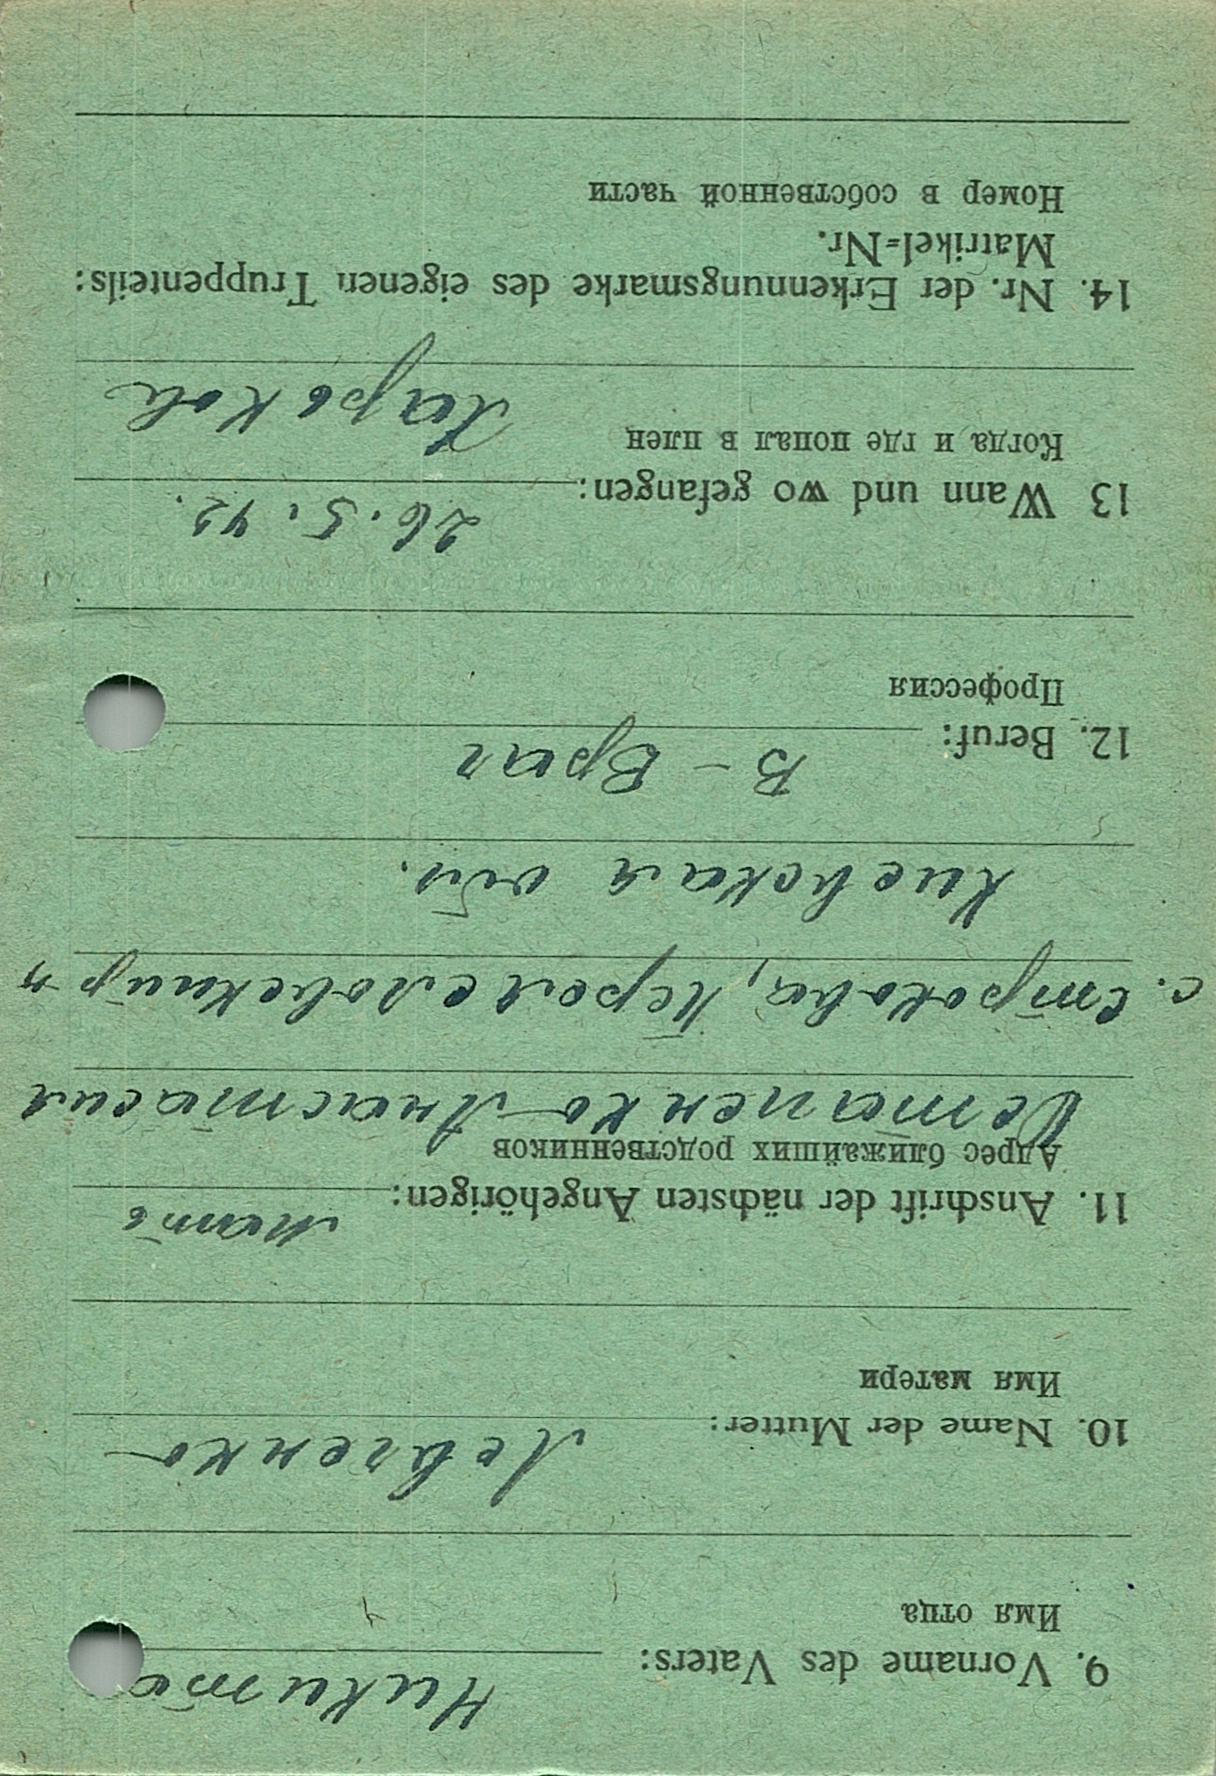 Никита
9. Vorname des Vaters:
Имя отца
Левченко
10. Name der Mutter:
Имя матери
Мать
11. Anschrift der nächsten Angehörigen:
Адрес ближайших родственников
Остапенко Анастасия
с. Строковa,
Киевская обл.
12. Beruf: В-Врач
Профессия
26. 5. 42.
13 Wann und wo gefangen:
Когда и где попал в плен
Харьков
14. Nr. der Erkennungsmarke des eigenen Truppenteils:
Matrikel=Nr.
Номер в собственной части